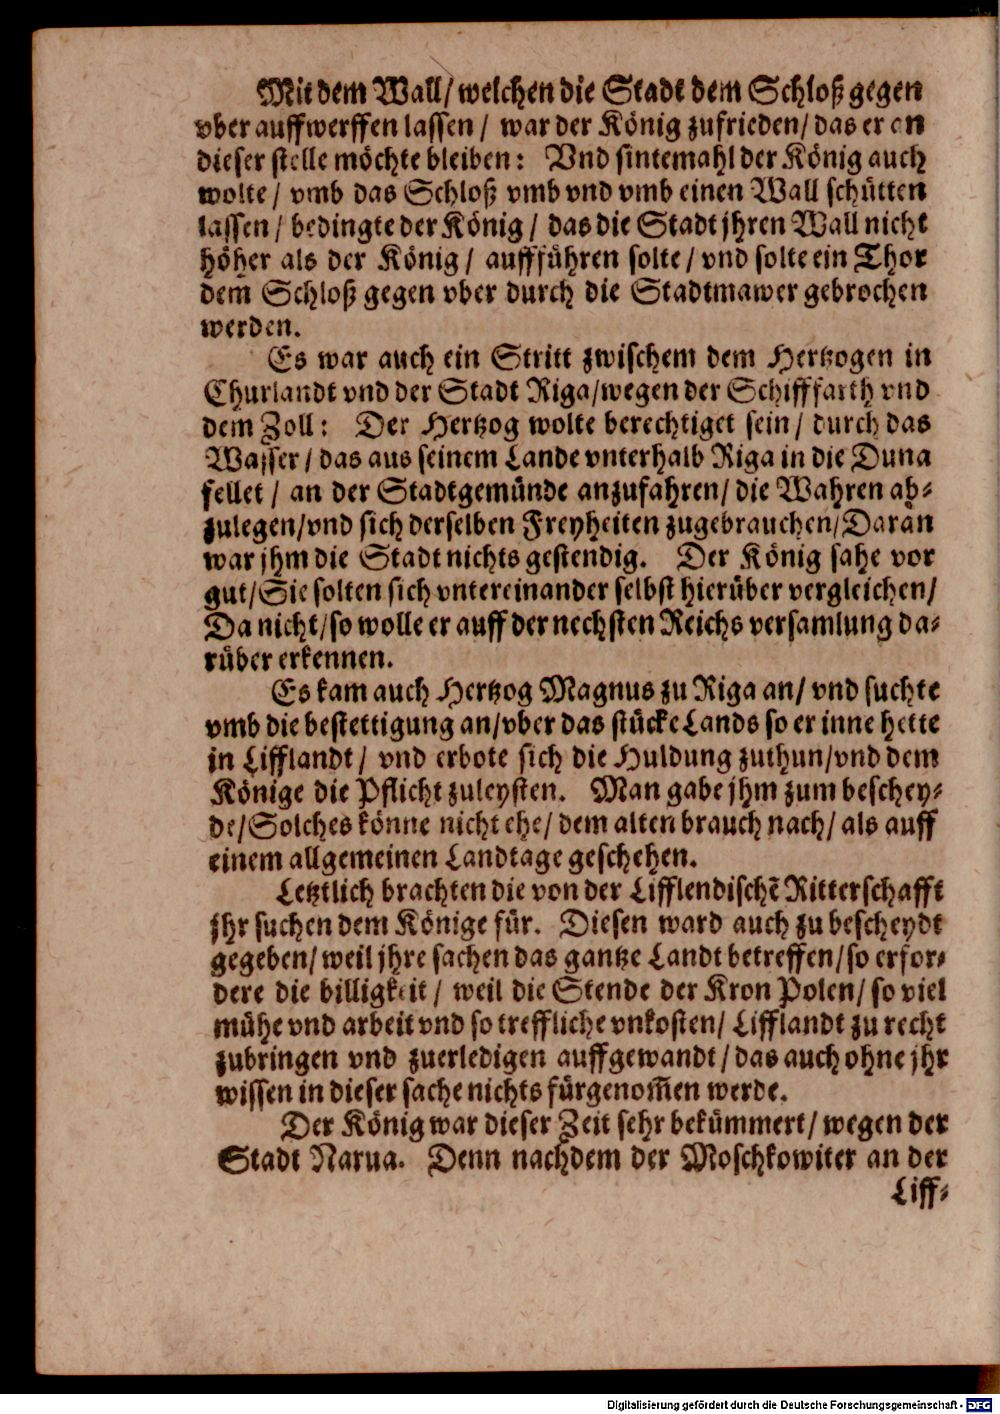 Mit dem Wall/ welchen die Stadt dem Schloß gegen
vber auffwerffen lassen / war der König zufrieden/ das er an
dieser stelle möchte bleiben: Vnd sintemahl der König auch
wolte / vmb das Schloß vmb vnd vmb einen Wall schütten
lassen / bedingte der König / das die Stadt jhren Wall nicht
höher als der König / auffführen solte / vnd solte ein Thor
dem Schloß gegen vber durch die Stadtmawer gebrochen
werden.
Es war auch ein Stritt zwischem dem Hertzogen in
Churlandt vnd der Stadt Riga/wegen der Schifffarth vnd
dem Zoll: Der Hertzog wolte berechtiget sein / durch das
Wasser / das aus seinem Lande vnterhalb Riga in die Duna
fellet / an der Stadtgemünde anzufahren/ die Wahren ab-
zulegen/vnd sich derselben Freyheiten zugebrauchen/Daran
war jhm die Stadt nichts gestendig. Der König sahe vor
gut/Sie solten sich vntereinander selbst hierüber vergleichen/
Da nicht/so wolle er auff der nechsten Reichs versamlung da-
rüber erkennen.
Es kam auch Hertzog Magnus zu Riga an/ vnd suchte
vmb die bestettigung an/vber das stücke Lands so er inne hette
in Lifflandt / vnd erbote sich die Huldung zuthun/vnd dem
Könige die Pflicht zuleysten. Man gabe jhm zum beschey-
de/Solches könne nicht ehe/ dem alten brauch nach/ als auff
einem allgemeinen Landtage geschehen.
Letztlich brachten die von der Lifflendischē Ritterschafft
jhr suchen dem Könige für. Diesen ward auch zu bescheydt
gegeben/ weil jhre sachen das gantze Landt betreffen/so erfor-
dere die billigkeit / weil die Stende der Kron Polen/ so viel
mühe vnd arbeit vnd so treffliche vnkosten/ Lifflandt zu recht
zubringen vnd zuerledigen auffgewandt / das auch ohne jhr
wissen in dieser sache nichts fürgenom̄en werde.
Der König war dieser Zeit sehr bekümmert/ wegen der
Stadt Narua. Denn nachdem der Moschkowiter an der
Liff-
Digitalisierung gefördert durch die Deutsche Forschungsgemeinschaft - DFG